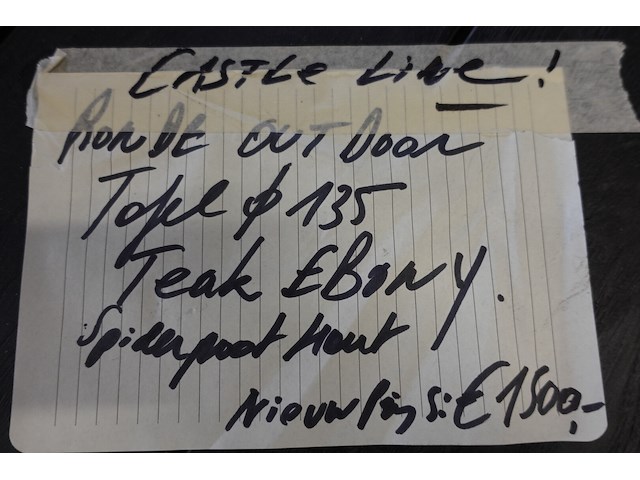 CASTLE LINE!
RONDE OUTDOOR
Tafel ϕ 135
Teak EBONY.
Spiderpoot Hout
Nieuw Prijs: € 1500,-